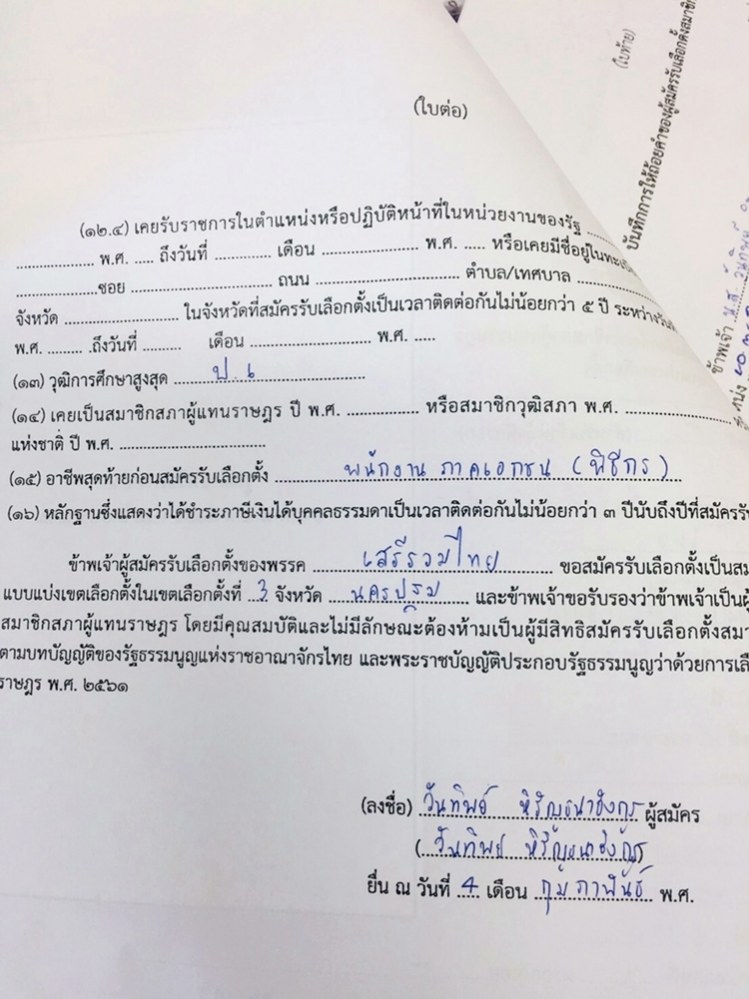 (ใบต่อ)
(๑๒.๔) เคยรับราชการในตำแหน่งหรือปฏิบัติหน้าที่ในหน่วยงานของรัฐ ........
.................. พ.ศ. ..... ถึงวันที่ ............. เดือน ...................... พ.ศ. ..... หรือเคยมีชื่ออยู่ใน
..................ซอย ................................ ถนน ................................ ตำบล/เทศบาล ................
จังหวัด ......................... ในจังหวัดที่สมัครรับเลือกตั้งเป็นเวลาติดต่อกันไม่น้อยกว่า ๕ ปี ระหว่าง
พ.ศ. ........ .ถึงวันที่ ......... เดือน ............................ พ.ศ. .....
(๑๓) วุฒิการศึกษาสูงสุด ........ป. เ........
(๑๔) เคยเป็นสมาชิกสภาผู้แทนราษฎร ปี พ.ศ. ................ หรือสมาชิกวุฒิสภา พ.ศ. ........................
แห่งชาติ ปี พ.ศ. ................................
(๑๕) อาชีพสุดท้ายก่อนสมัครรับเลือกตั้ง พนักงาน ภาคเอกชน (พิธีกร)
(๑๖) หลักฐานซึ่งแสดงว่าได้ชำระภาษีเงินได้บุคคลธรรมดาเป็นเวลาติดต่อกันไม่น้อยกว่า ๓ ปีนับถึงปีที่สมัคร
ข้าพเจ้าผู้สมัครรับเลือกตั้งของพรรค เสรีรวมไทย ขอสมัครรับเลือกตั้งเป็น
แบบแบ่งเขตเลือกตั้งในเขตเลือกตั้งที่ 3 จังหวัด นครปฐม และข้าพเจ้าขอรับรองว่าข้าพเจ้าเป็น
สมาชิกสภาผู้แทนราษฎร โดยมีคุณสมบัติและไม่มีลักษณะต้องห้ามเป็นผู้มีสิทธิสมัครรับเลือกตั้ง
ตามบทบัญญัติของรัฐธรรมนูญแห่งราชอาณาจักรไทย และพระราชบัญญัติประกอบรัฐธรรมนูญว่าด้วยการ
ราษฎร พ.ศ. ๒๕๖๑
(ลงชื่อ) วันทิพย์ หิรัญธนาฮังกูร ผู้สมัคร
(วันทิพย์
ยื่น ณ วันที่ 4 เดือน กุมภาพันธ์ พ.ศ.
(ใบท้าย)
บันทึกการให้ถ้อยคำของผู้สมัครรับเลือกตั้ง
ข้าพเจ้า